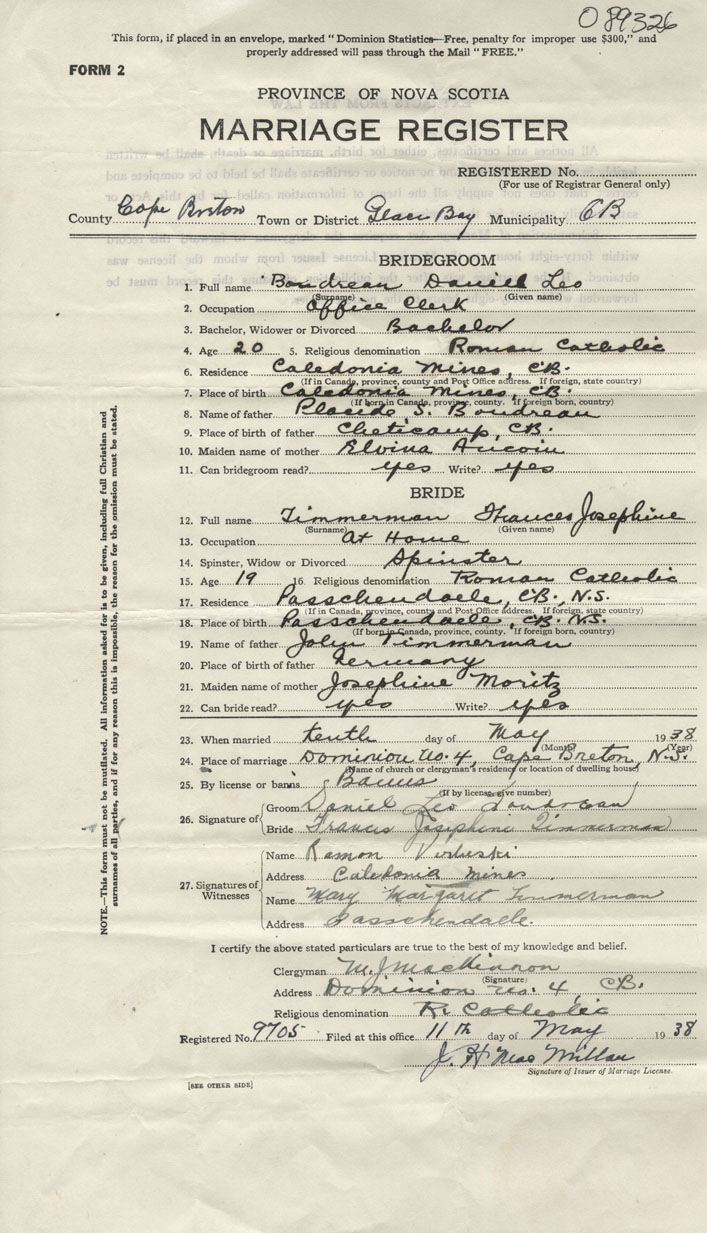 O 89326
This form, if placed in an envelope, marked "Dominion Statistics—Free, penalty for improper use $300," and
properly addressed will pass through the Mail "FREE."
FORM 2
PROVINCE OF NOVA SCOTIA
MARRIAGE REGISTER
REGISTERED No.
(For use of Registrar General only)
County Cape Breton Town or District Glace Bay Municipality CB
BRIDEGROOM
1. Full name Boudreau Daniel Leo
(Surname) (Given name)
2. Occupation Office Clerk
3. Bachelor, Widower or Divorced Bachelor
4. Age 20 5. Religious denomination Roman Catholic
6. Residence Caledonia Mines, CB.
(If in Canada, province, county and Post Office address. If foreign, state country)
7. Place of birth Caledonia Mines, CB.
(If born in Canada, province, county. If foreign born, country)
8. Name of father Placide S. Boudreau
9. Place of birth of father Cheticamp, CB.
10. Maiden name of mother Elvina Aucoin
11. Can bridegroom read? yes Write? yes
BRIDE
12. Full name Timmerman Frances Josephine
(Surname) (Given name)
13. Occupation At Home
14. Spinster, Widow or Divorced Spinster
15. Age 19 16. Religious denomination Roman Catholic
17. Residence Passchendaele, CB., N.S.
(If in Canada, province, county and Post Office address. If foreign, state country)
18. Place of birth Passchendaele, CB. N.S.
(If born in Canada, province, county. If foreign born, country)
19. Name of father John Timmerman
20. Place of birth of father Germany
21. Maiden name of mother Josephine Moritz
22. Can bride read? yes Write? yes
23. When married tenth day of May 1938
(Month) (Year)
24. Place of marriage Dominion No. 4, Cape Breton, N.S.
(Name of church or clergyman's residency or location of dwelling house)
25. By license or banns Banns
(If by license, give number)
26. Signature of
Groom Daniel Leo Boudreau
Bride Francis Josephine Timmerman
27. Signatures of Witnesses
Name Ramon
Address Caledonia Mines
Name Mary Margaret Timmerman
Address Passchendaele.
I certify the above stated particulars are true to the best of my knowledge and belief.
Clergyman M. J. MacKinnon
(Signature)
Address Dominion No. 4, CB.
Religious denomination R. Catholic
Registered No. 9705 Filed at this office 11th day of May 1938
J. H. MacMillan
Signature of Issuer of Marriage License.
[SEE OTHER SIDE]
NOTE.—This form must not be mutilated. All information asked for is to be given, including full Christian and
surnames of all parties, and if for any reason this is impossible, the reason for the omission must be stated.